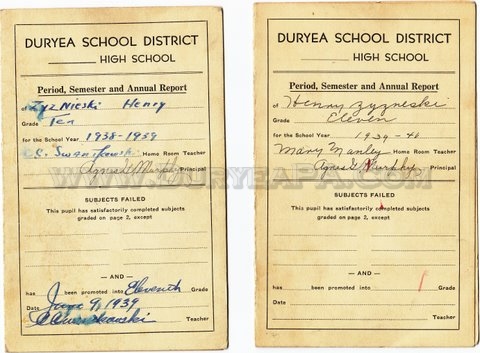 DURYEA SCHOOL DISTRICT
HIGH SCHOOL
Period, Semester and Annual Report
of Zyznieski Henry
Grade Ten
for the School Year 1938-1939
C.C. Home Room Teacher
Agnes G. Murphy Principal
SUBJECTS FAILED
This pupil has satisfactorily completed subjects
graded on page 2, except
— AND —
has been promoted into Eleventh Grade
Date June 9, 1939
Teacher
DURYEA SCHOOL DISTRICT
HIGH SCHOOL
Period, Semester and Annual Report
of Henry Zyzneski
Grade Eleven
for the School Year 1939-40
Mary Manley Home Room Teacher
Agnes G. Murphy Principal
SUBJECTS FAILED
This pupil has satisfactorily completed subjects
graded on page 2, except
— AND —
has been promoted into Grade
Date
Teacher
WWW.DURYEAPA.COM